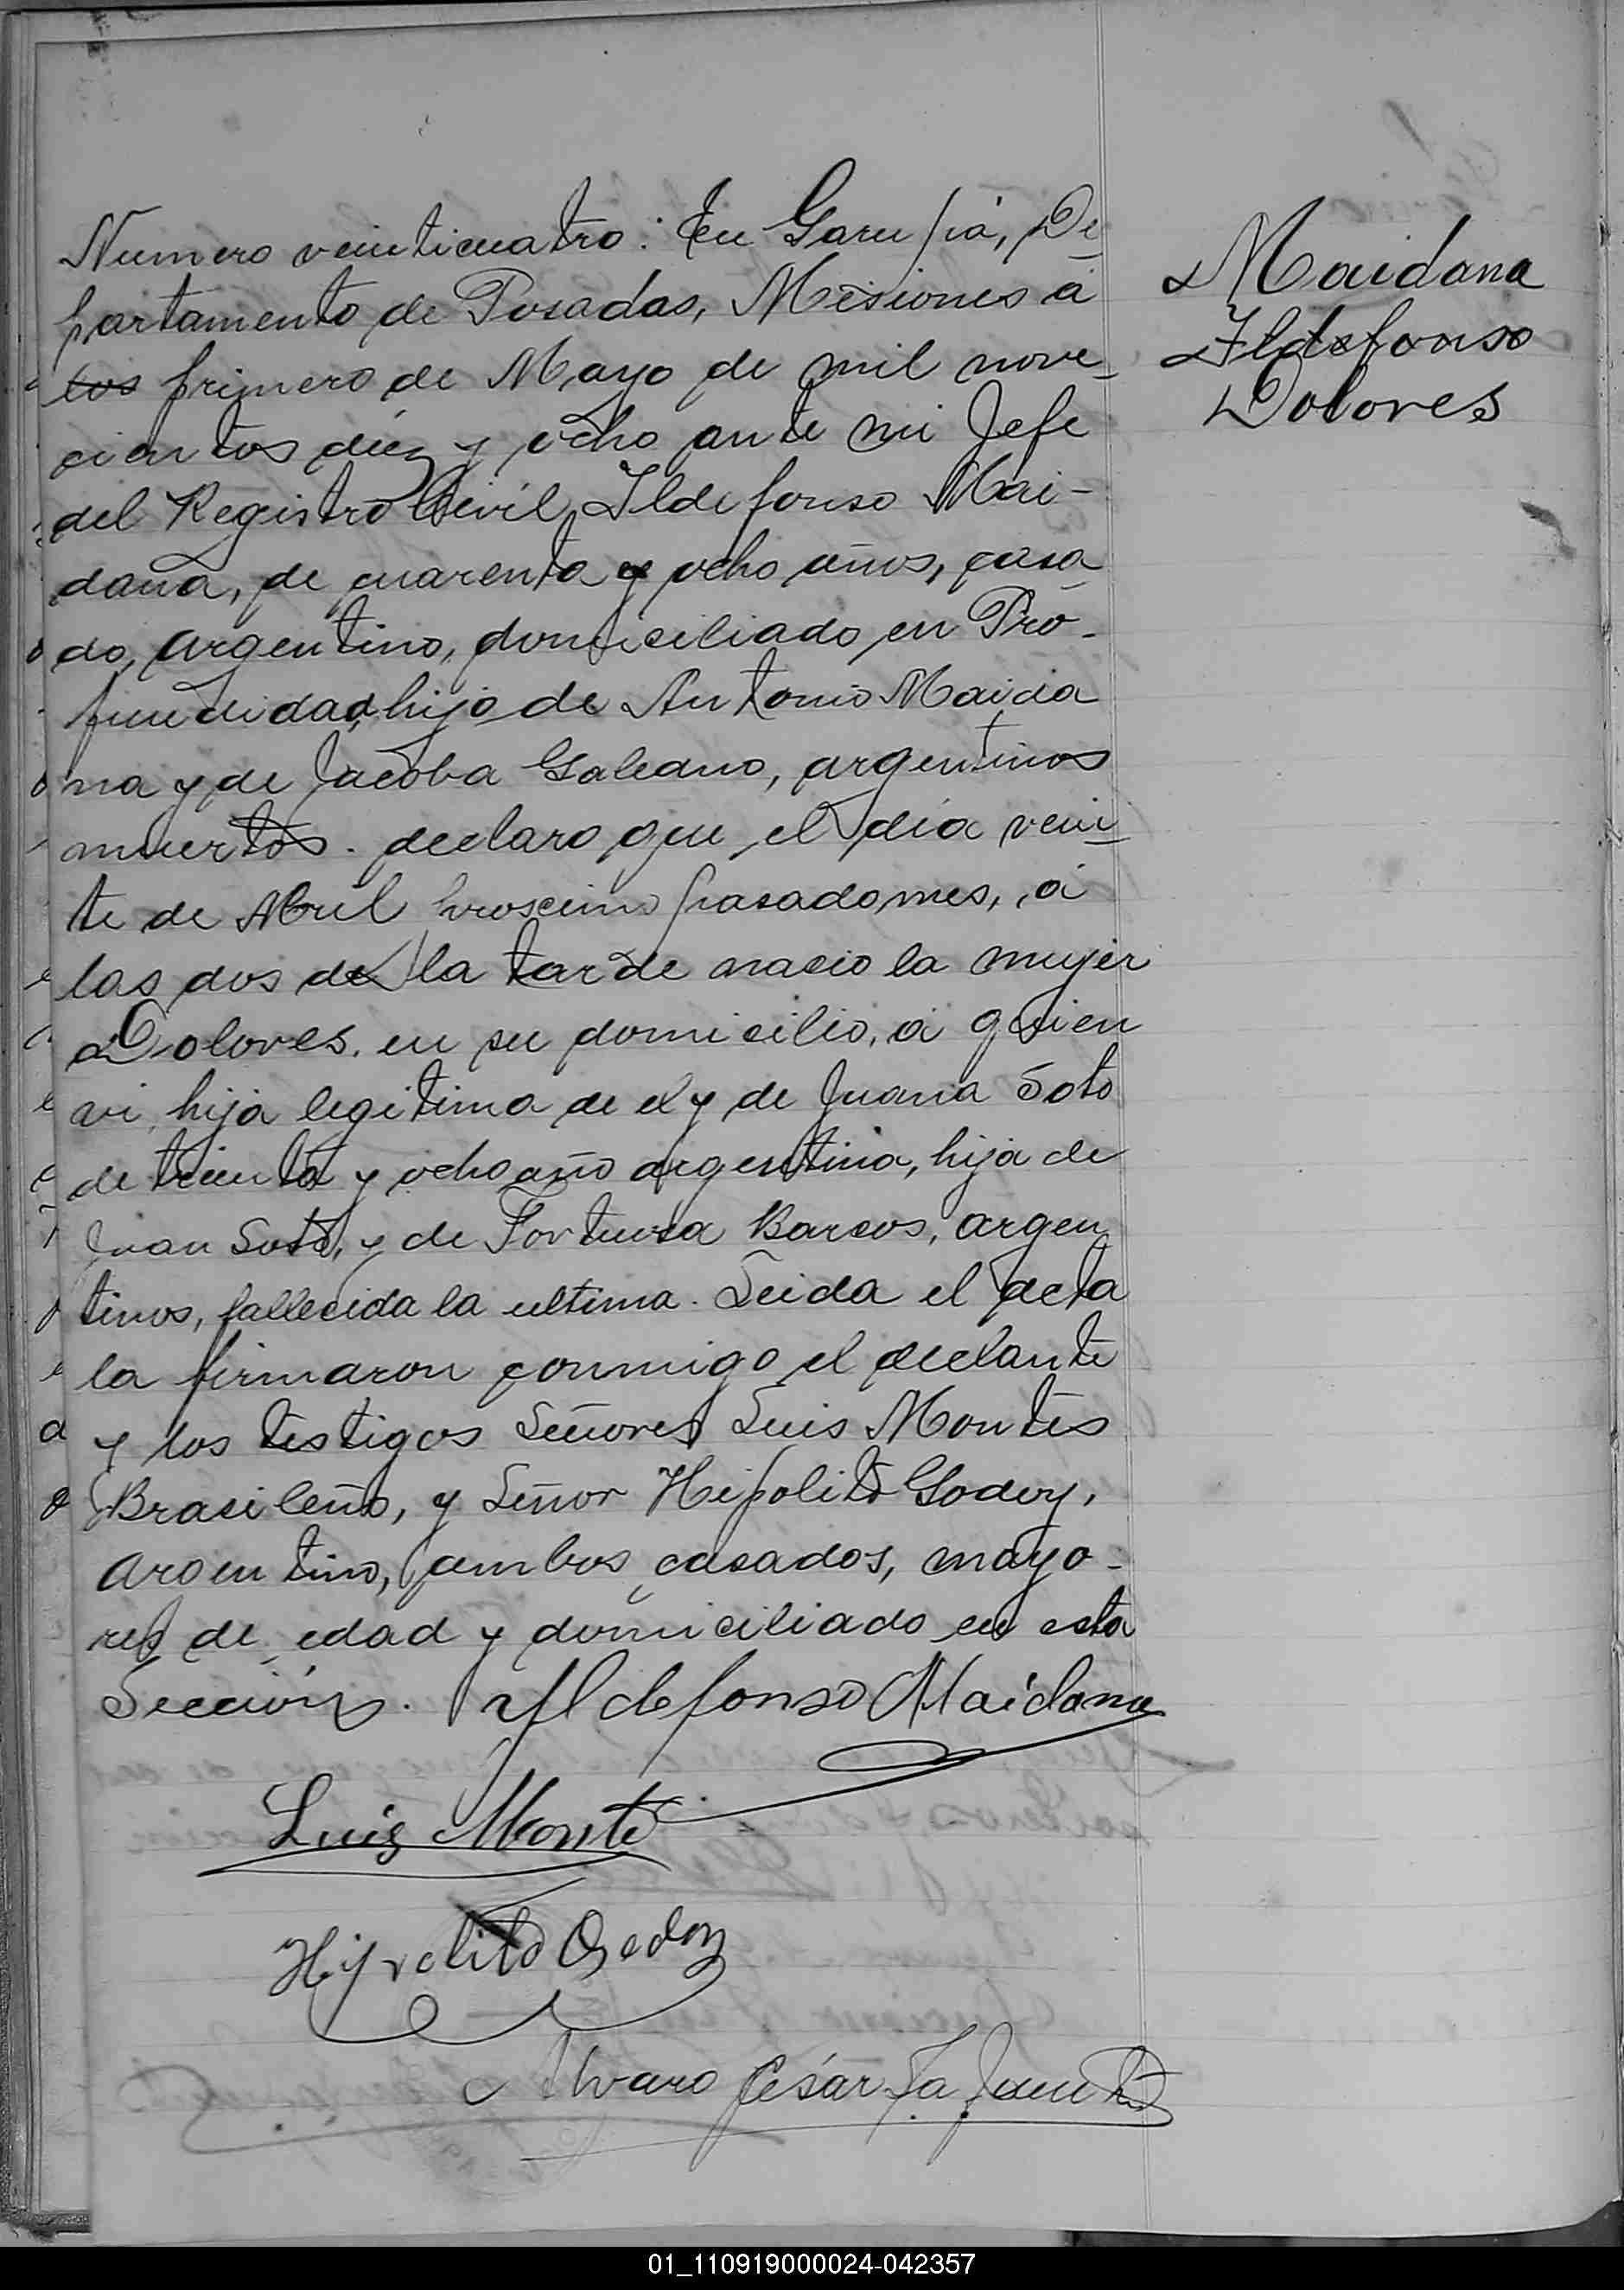 Numero veinticuatro: En Garupá, De
partamento de Posadas, Misiones á
los primero de Mayo de mil nove
cientos diez y ocho ante mi Jefe
del Registro Civil, Ildefonso Mai-
dana, de cuarenta y ocho años, casa
do, argentino, domiciliado en Pro-
fundidad, hijo de Antonio Maida
na y de Jacoba Galeano, argentinos
muertos. declaro que el día vein
te de Abril proscimo pasado mes, á
las dos de la tarde nacio la mujer
Dolores, en su domicilio, á quien
vi, hija legitima de el y de Juana Soto
de treinta y ocho año argentina, hija de
Juan Soto, y de Fortuosa Barsos, argen
tinos, fallecida la ultima. Leida el acta
la firmaron conmigo el declante
y los testigos Señores Luis Montes
Brasileño, y Señor Hipolito Godoy,
Argentino, ambos casados, mayo-
res de edad y domiciliado en esta
Sección. Ildefonso Maidana
Luis Monte
Hipolito Godoy
Alvaro César
Maidana
Ildefonso
Dolores
01_110919000024-042357